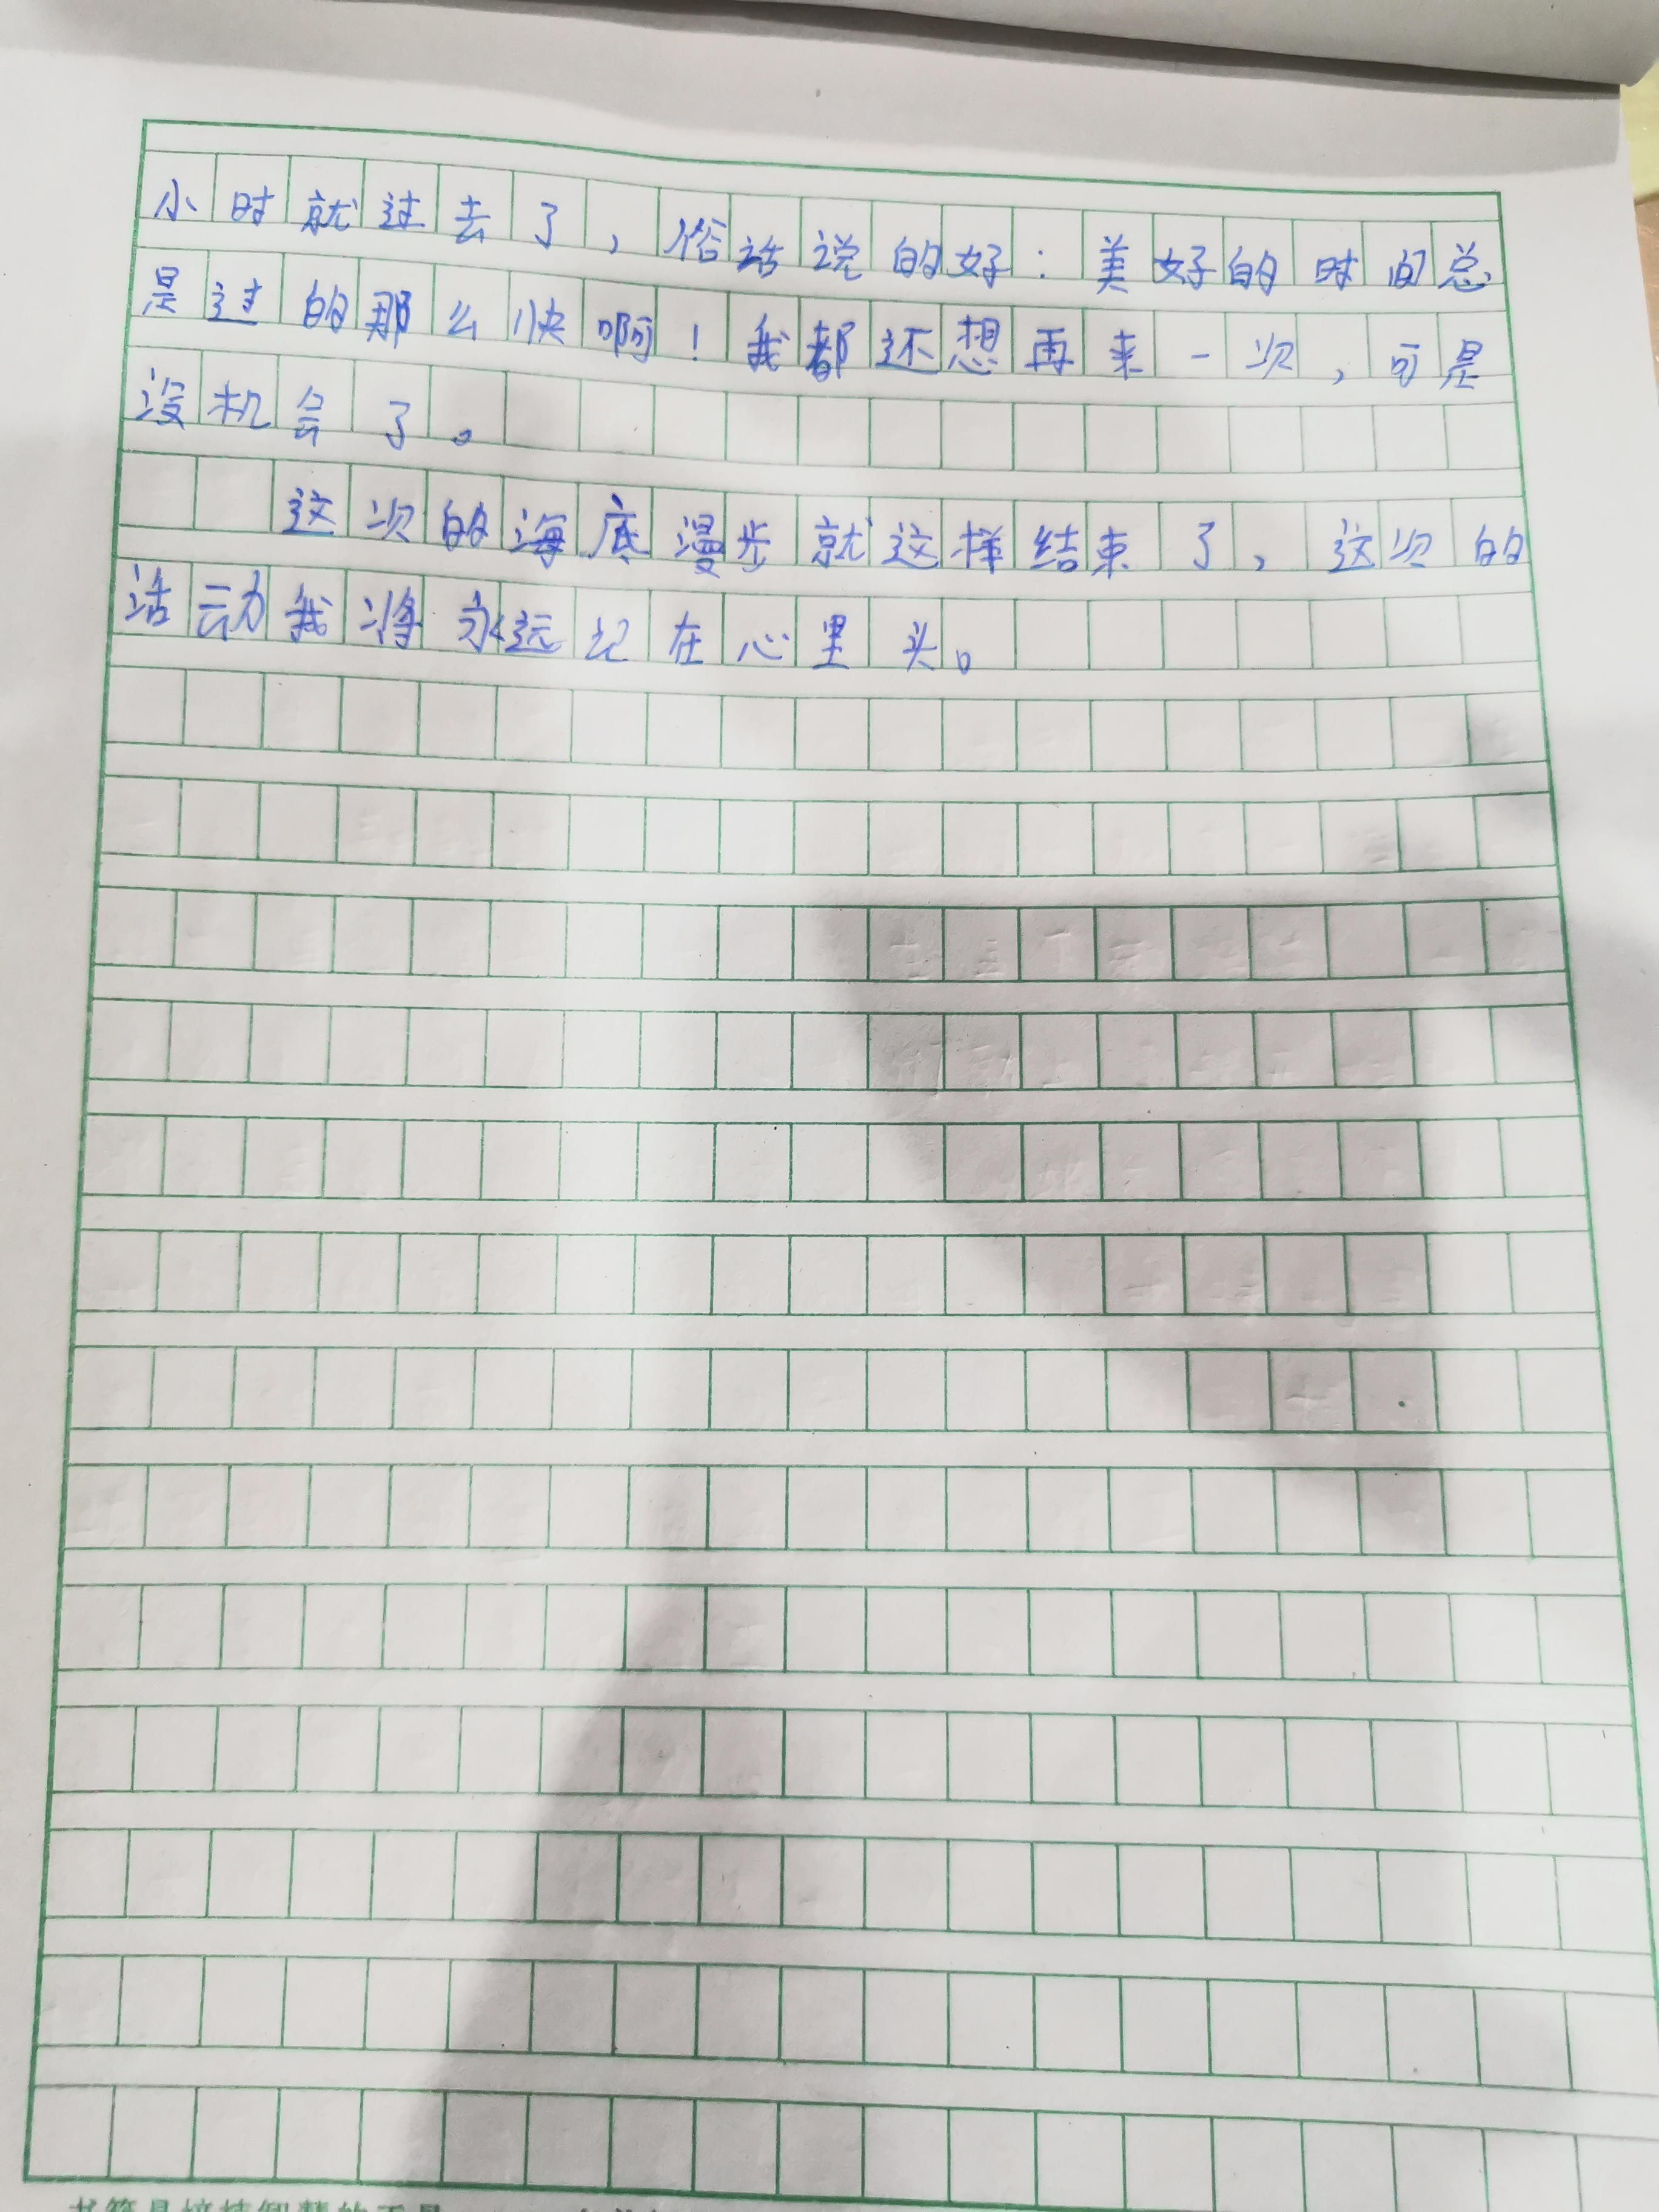 小时就过去了，俗话说的好：美好的时间总
是过的那么快啊！我都还想再来一次，可是
没机会了。
这次的海底漫步就这样结束了，这次的
活动我将永远记在心里头。